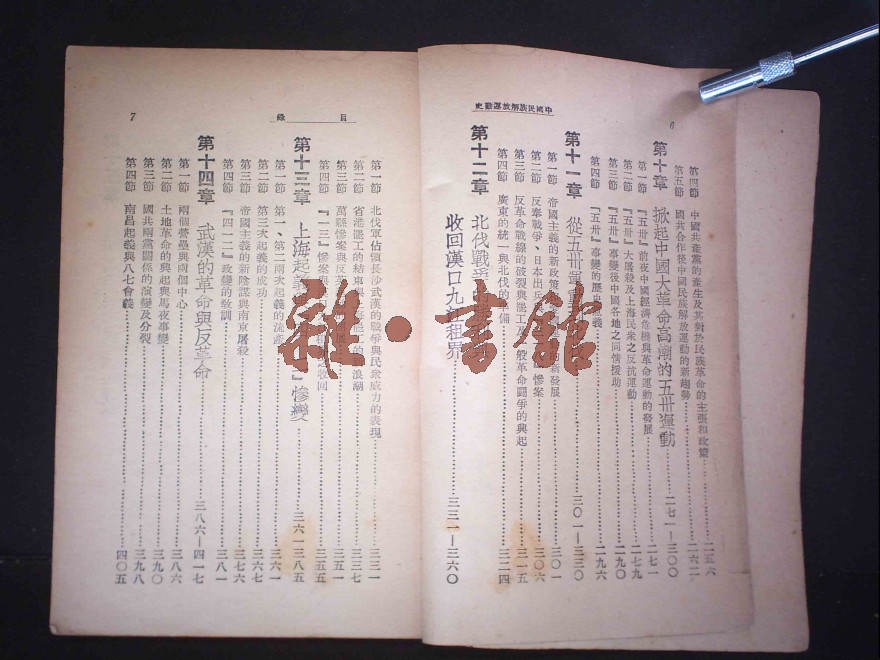 中國民族解放運動史
6
第四節 中國共產黨的產生及其對於民族革命的主張和政策 二五六
第五節 國共合作後中國民族解放運動的新趨勢 二六二
第十章 掀起中國大革命高潮的五卅運動 二七一—三〇〇
第一節 『五卅』前夜中國經濟危機與革命運動的發展 二七一
第二節 『五卅』大屠殺及上海民衆之反抗運動 二七九
第三節 『五卅』事變後中國各地之同情援助 二九〇
第四節 『五卅』事變的歷史 義 二九六
第十一章 從五卅運動 三〇一—三三〇
第一節 帝國主義的新政策 的新發展 三〇一
第二節 反奉戰爭、日本出兵 慘案 三〇六
第三節 反革命戰線的破裂與罷工及 般革命鬪爭的興起 三一五
第四節 廣東的統一與北伐的準備 三二四
第十二章 北伐戰爭的
收回漢口九江租界 三三一—三六〇
目錄
7
第一節 北伐軍佔領長沙武漢的戰爭與民衆威力的表現 三三一
第二節 省港罷工的結束與 的 浪潮 三三七
第三節 萬縣慘案與反英 展 三五一
第四節 『一三』慘案與 租 收回 三五五
第十三章 上海起義 』慘變 三六一—三八五
第一節 第一、第二兩次起義的流產 三六一
第二節 第三次起義的成功 三六七
第三節 帝國主義的新陰謀與南京屠殺 三七六
第四節 『四一二』政變的敎訓 三八一
第十四章 武漢的革命與反革命 三八六—四一七
第一節 兩個營壘與兩個中心 三八六
第二節 土地革命的興起與馬夜事變 三九〇
第三節 國共兩黨關係的演變及分裂 三九八
第四節 南昌起義與八七會議 四〇五
雜·書館